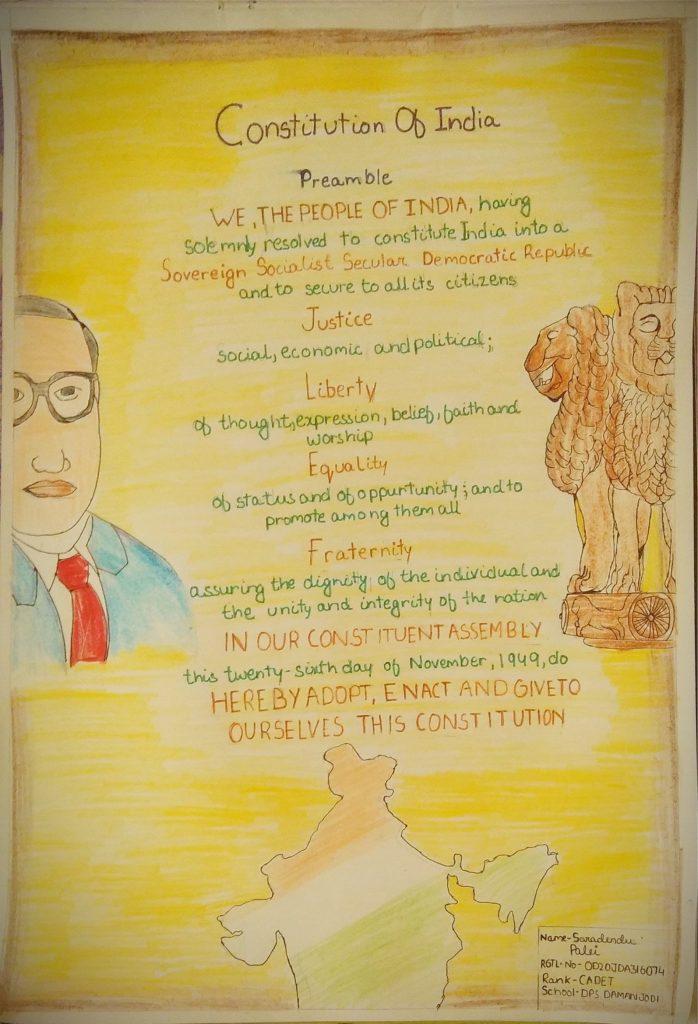 Constitution Of India
Preamble
WE, THE PEOPLE OF INDIA, having
solemnly resolved to constitute India into a
Sovereign Socialist Secular Democratic Republic
and to secure to all its citizens
Justice
social, economic and political;
Liberty
of thought, expression, belief, faith and
worship
Equality
of status and of oppurtunity; and to
promote among them all
Fraternity
assuring the dignity of the individual and
the unity and integrity of the nation
IN OUR CONSTITUENT ASSEMBLY
this twenty-sixth day of November, 1949, do
HEREBY ADOPT, ENACT AND GIVE TO
OURSELVES THIS CONSTITUTION
Name-Saradendu
Palei
RGTL-No-OD20JDA316074
Rank-CADET
School-DPS DAMANJODI